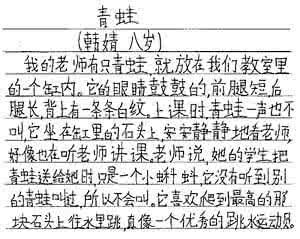 青蛙
(韩婧 八岁)
我的老师有只青蛙,就放在我们教室里
的一个缸内。它的眼睛鼓鼓的,前腿短,后
腿长,背上有一条条白纹。上课时青蛙一声也不
叫,它坐在缸里的石头上,安安静静地看老师,
好像也在听老师讲课。老师说,她的学生把
青蛙送给她时,只是一个小蝌蚪,它没有听到别
的青蛙叫过,所以不会叫。它喜欢爬到最高的那
块石头上往水里跳,真像一个优秀的跳水运动员。